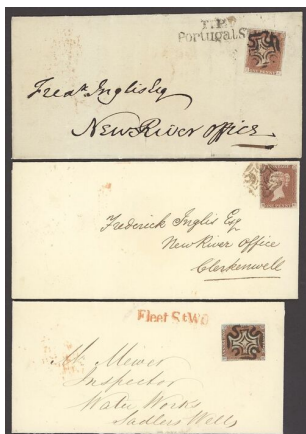 T.P
Portugal St
Fredk Inglis Esq
New River Office
Frederick Inglis Esq
New River Office
Clerkenwell
Fleet St W O
M. Mewer
Inspector
Water Works
Sadlers Wells